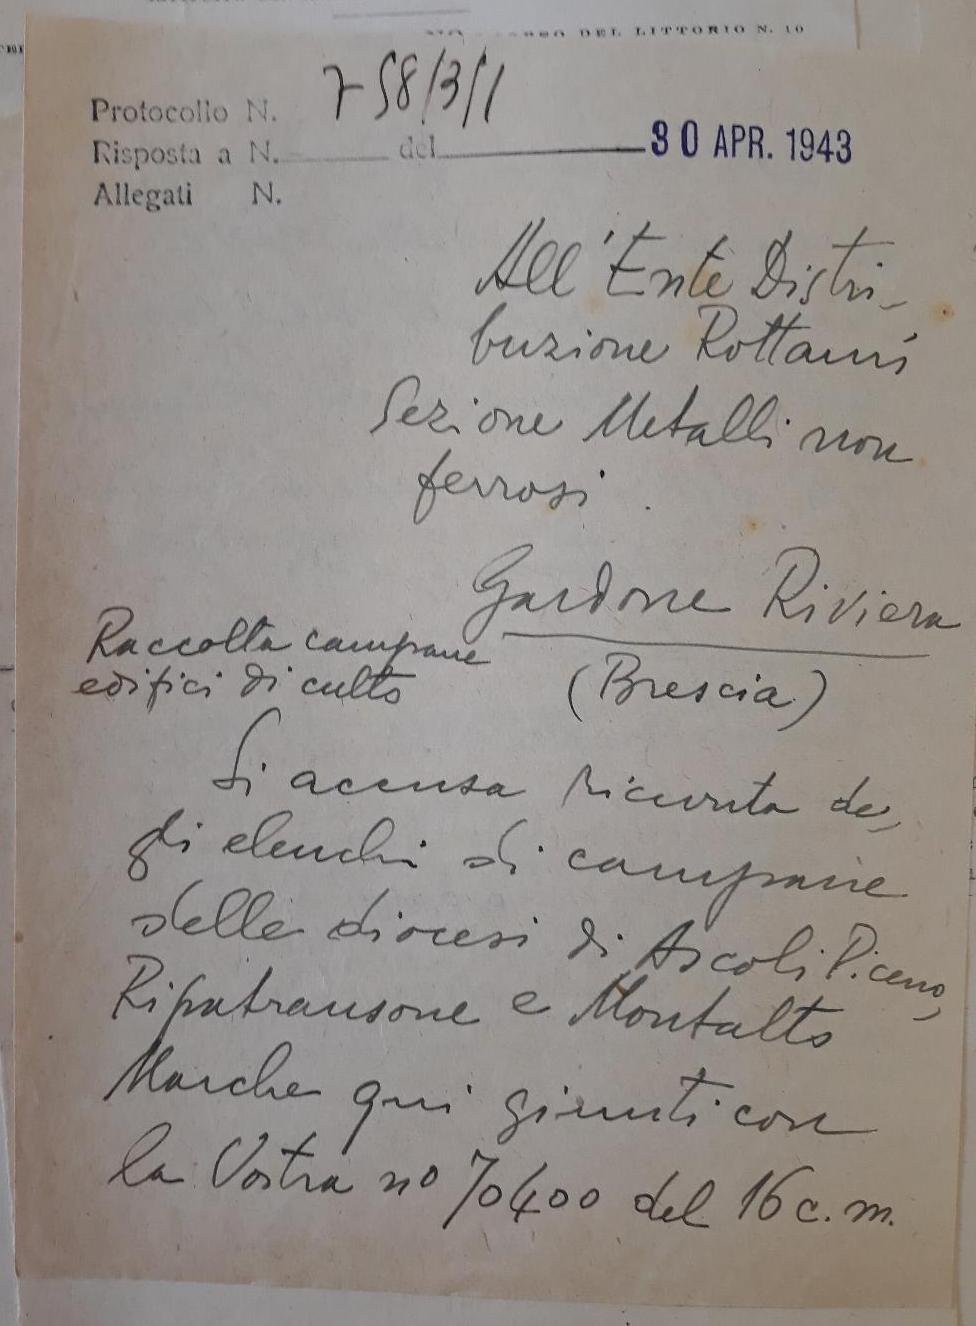 DEL LITTORIO N. 10
Protocollo N. 7-58/3/1
Risposta a N. del 30 APR. 1943
Allegati N.
All'Ente Distri-
buzione Rottami
Sezione Metalli non
ferrosi.
Gardone Riviera
(Brescia)
Raccolta campane
edifici di culto
Si accusa ricevuta de-
gli elenchi di campane
delle diocesi di Ascoli Piceno,
Ripatransone e Montalto
Marche qui giunti con
la Vostra nº 70400 del 16 c.m.